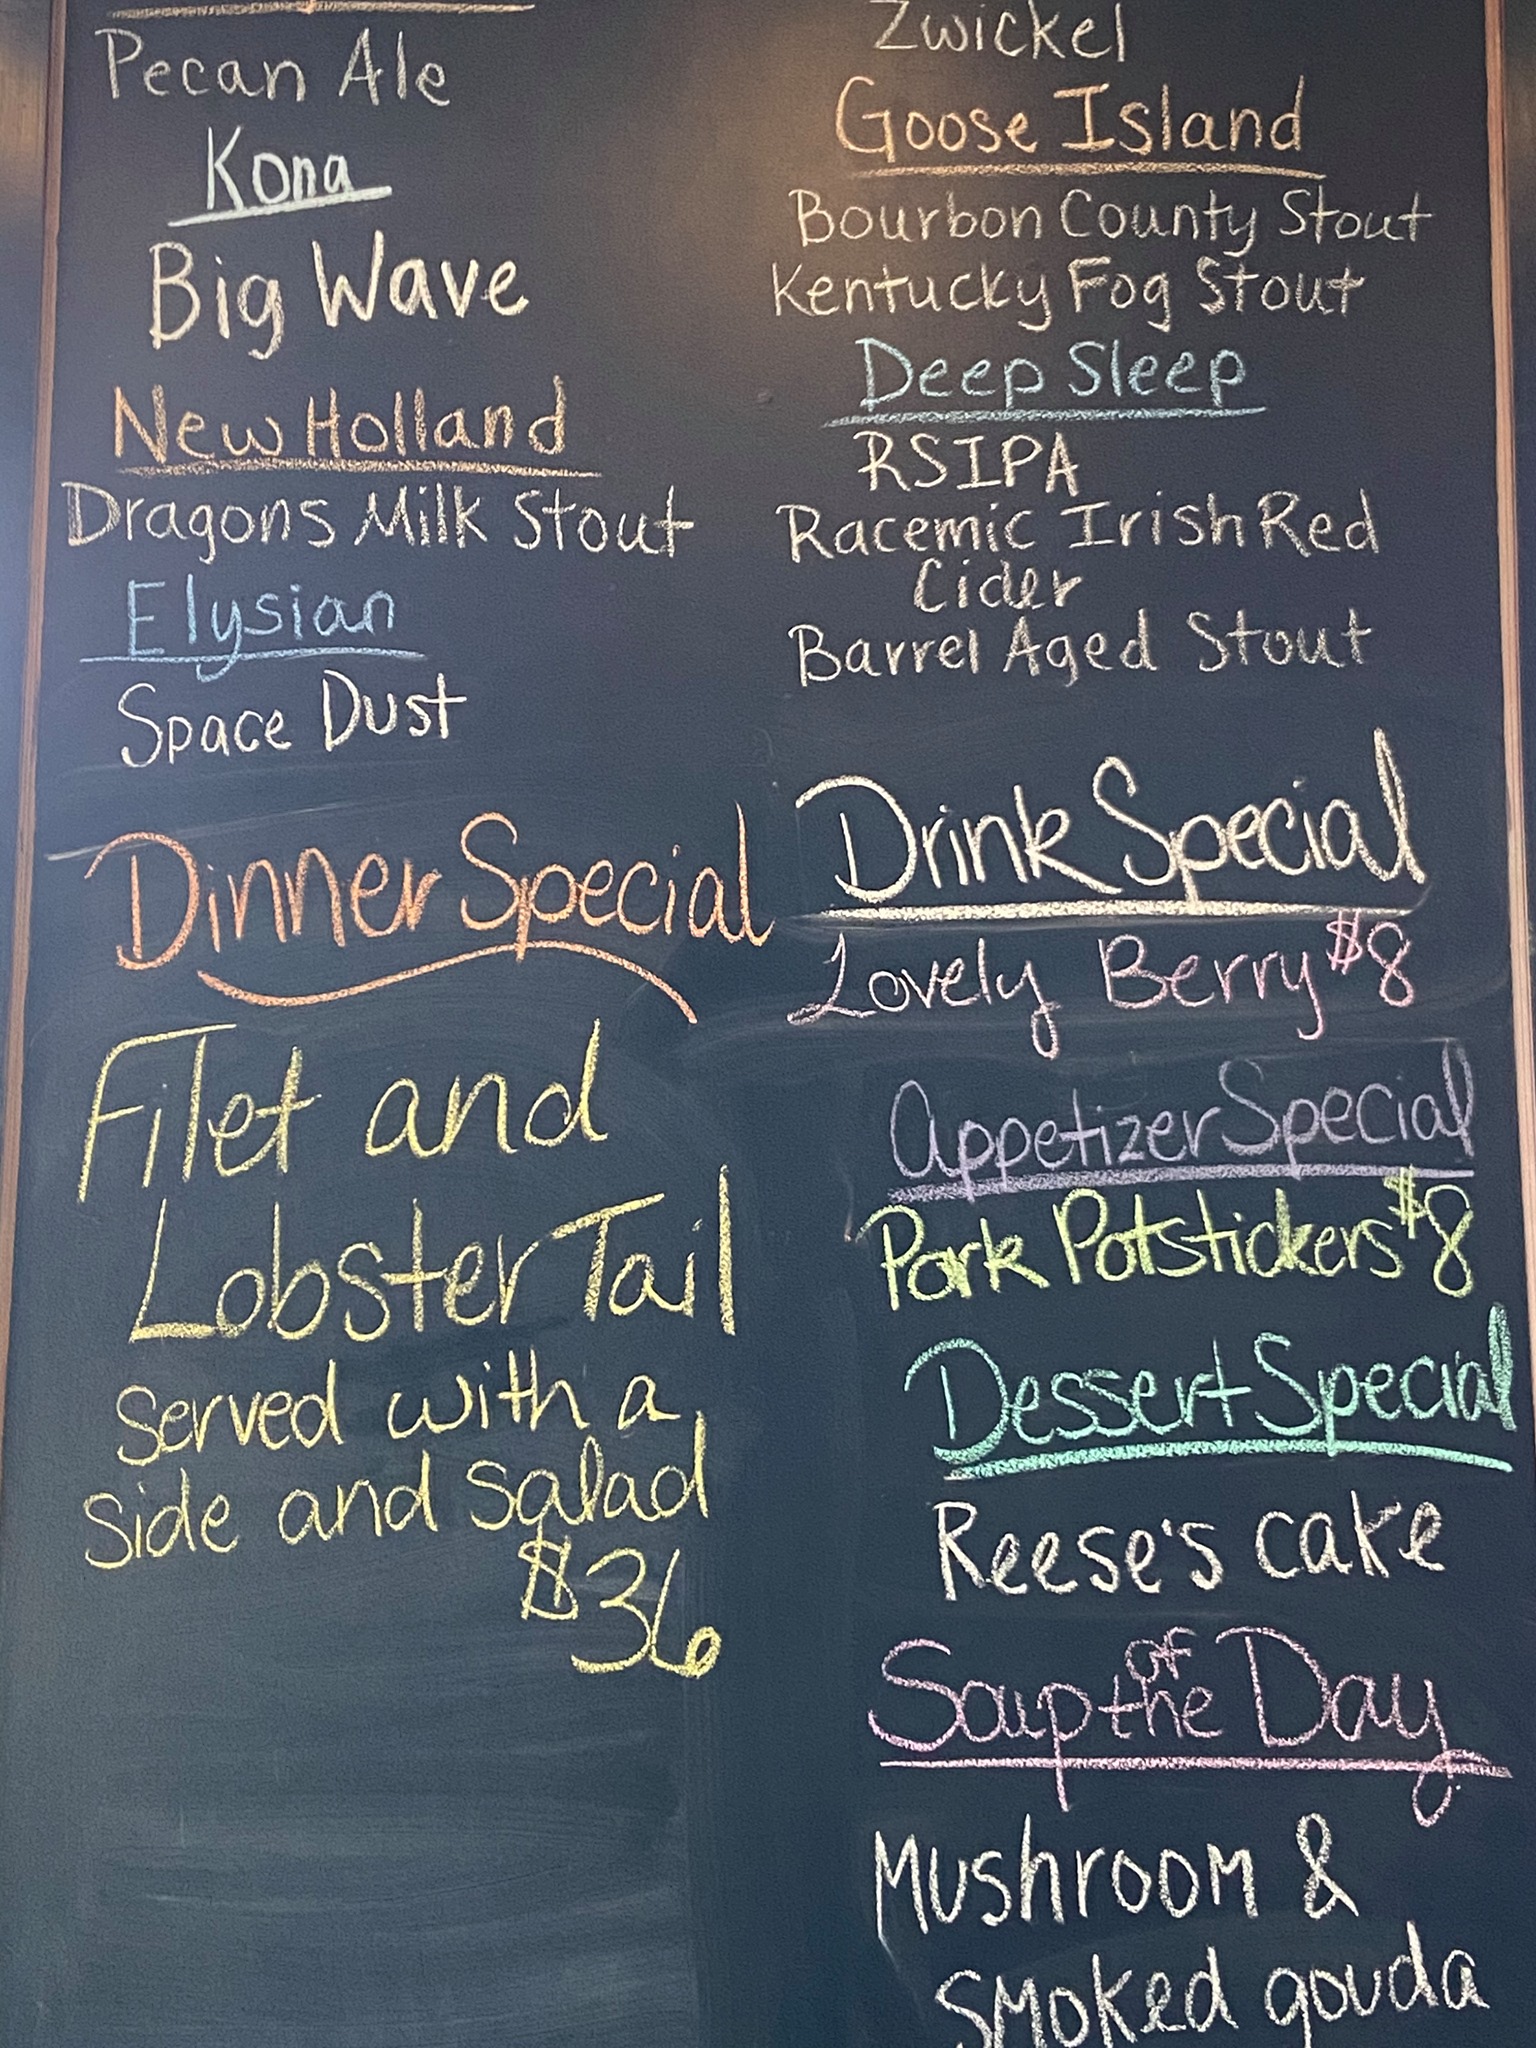 Pecan Ale
Kona
Big Wave
New Holland
Dragons Milk Stout
Elysian
Space Dust
Dinner Special
Filet and
Lobster Tail
Served with a
side and salad
$36
Zwickel
Goose Island
Bourbon County Stout
Kentucky Fog Stout
Deep Sleep
RSIPA
Racemic Irish Red
Cider
Barrel Aged Stout
Drink Special
Lovely Berry $8
Appetizer Special
Pork Potstickers $8
Dessert Special
Reese's cake
Soup of the Day
Mushroom &
smoked gouda